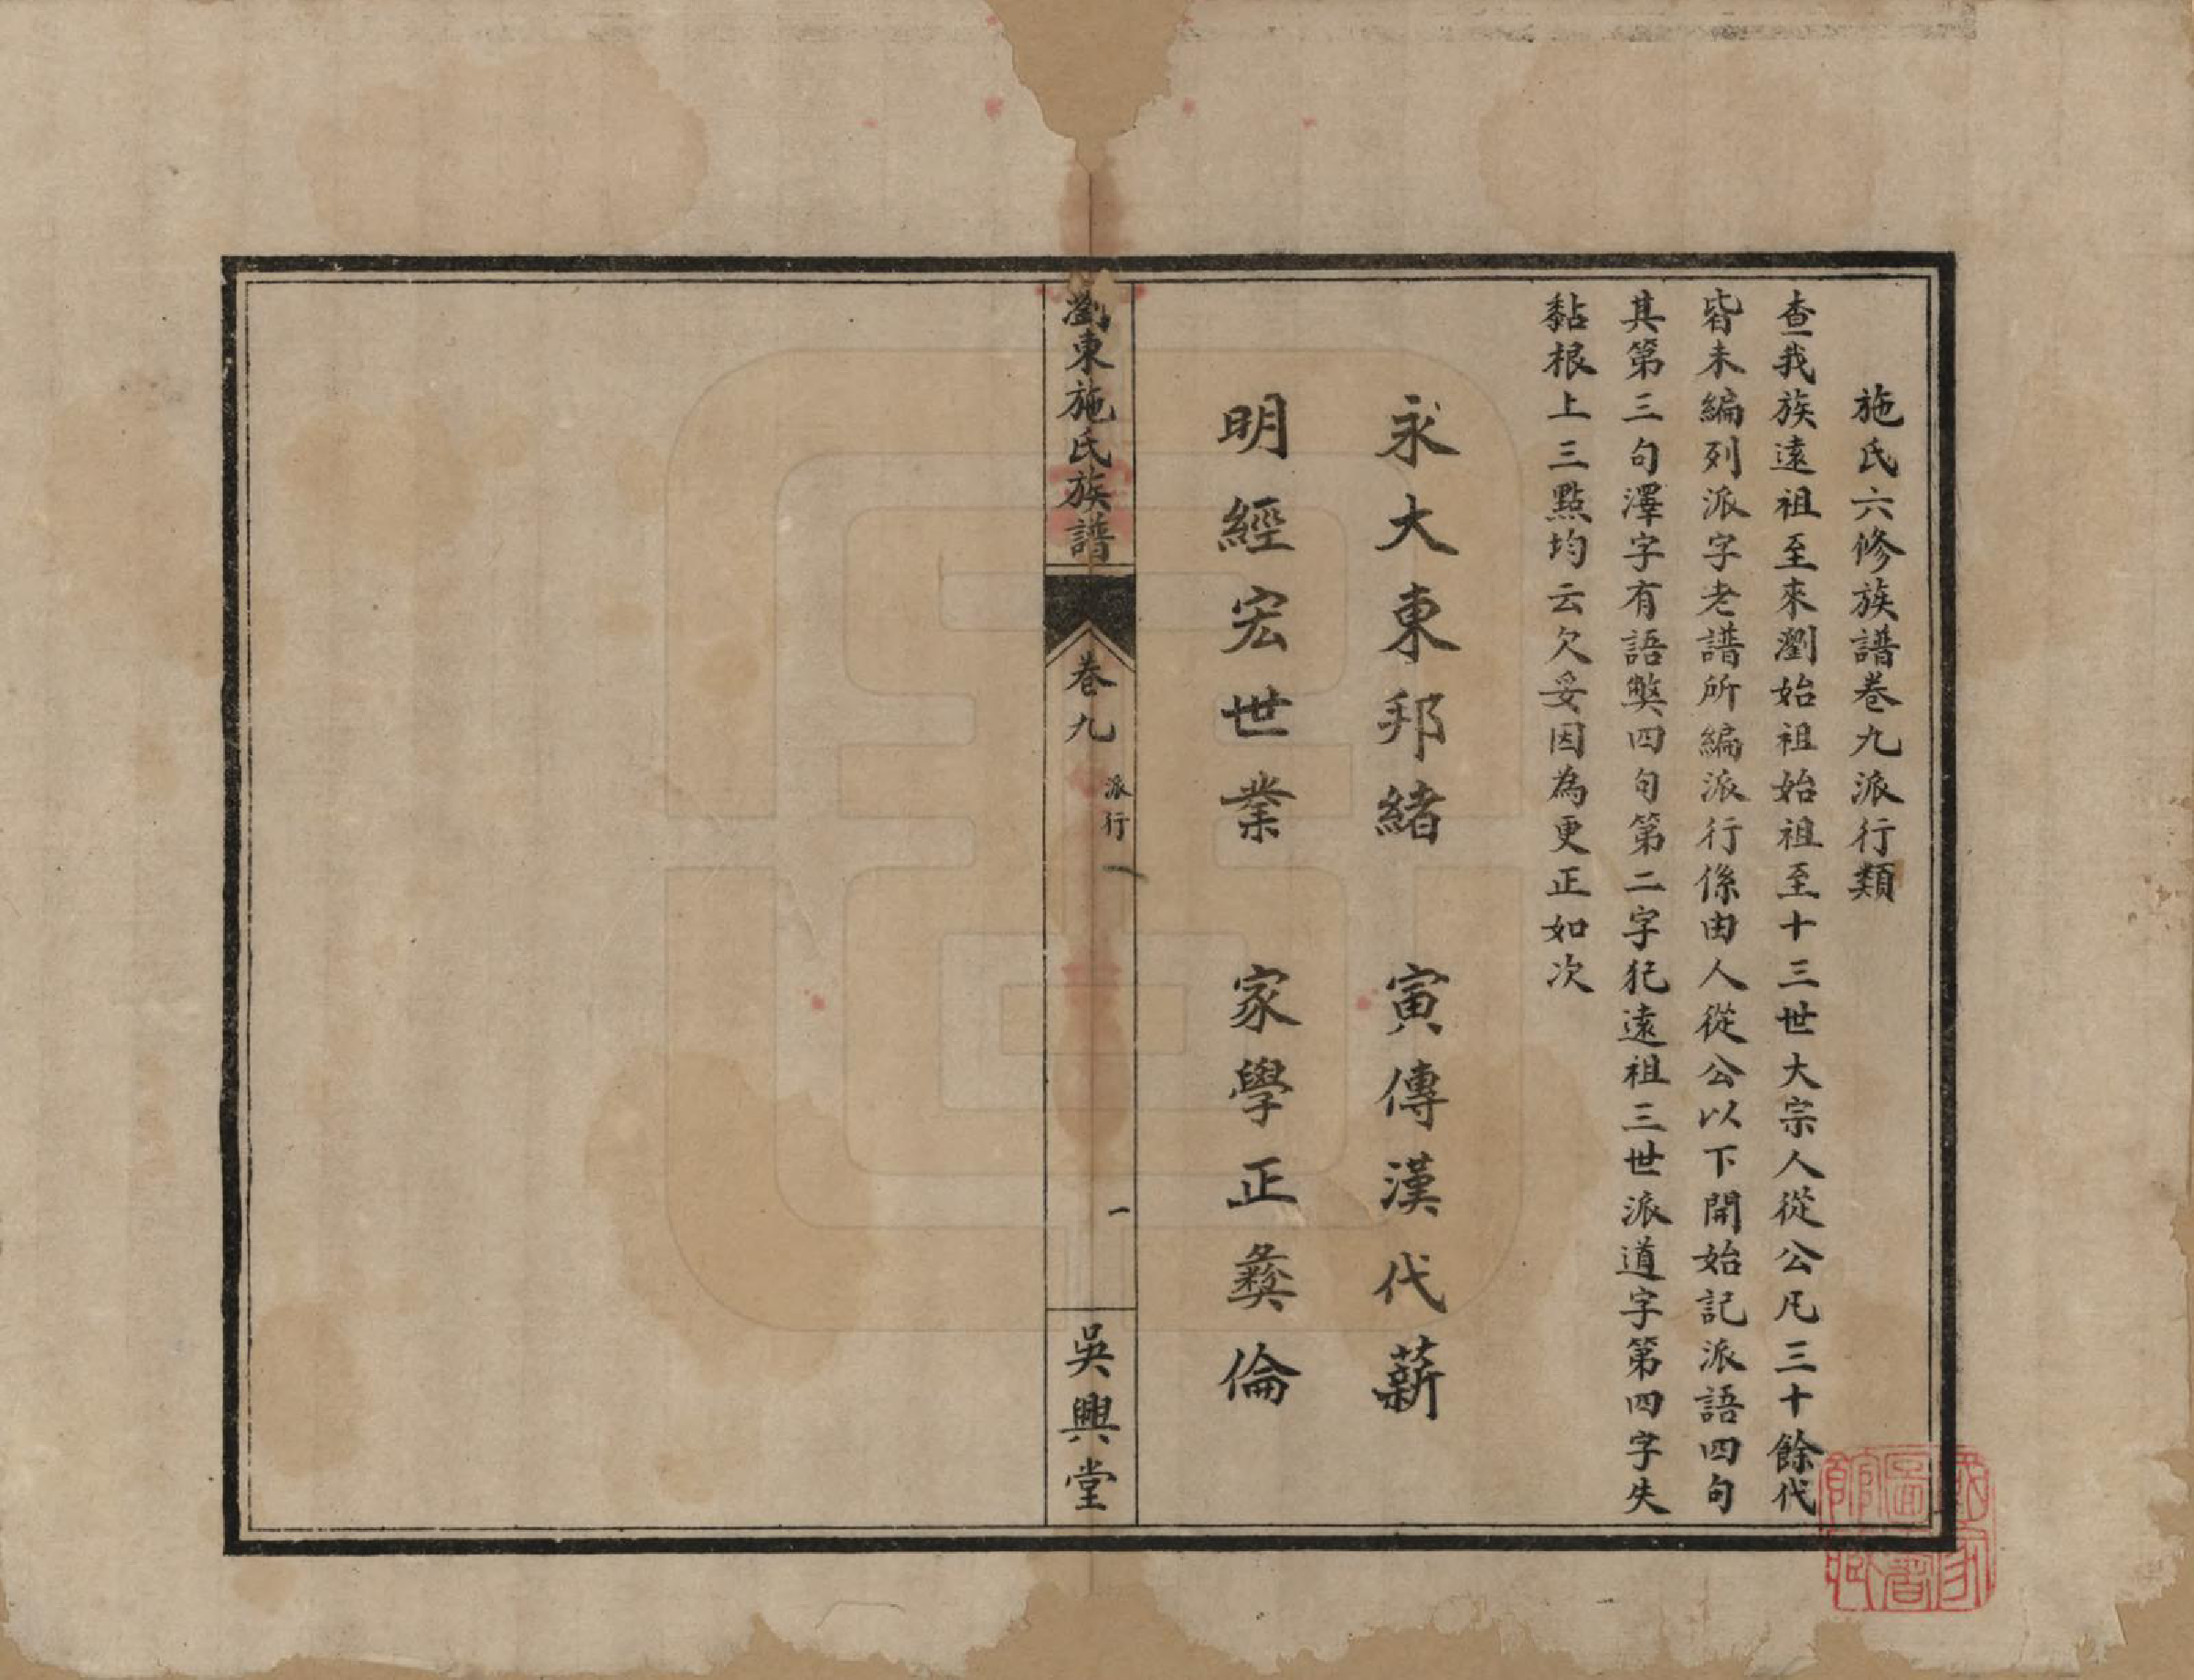 施氏六修族譜卷九派行類
查我族遠祖至來瀏始祖始祖至十三世大宗人從公凡三十餘代
皆未編列派字老譜所編派行係由人從公以下開始記派語四句
其第三句澤字有語獘四句第二字犯遠祖三世派道字第四字失
黏根上三點均云欠妥因為更正如次
永大東邦緒　寅傳漢代薪
明經宏世業　家學正彝倫
瀏東施氏族譜
卷九
派行
一
吳興堂
國家圖書館藏